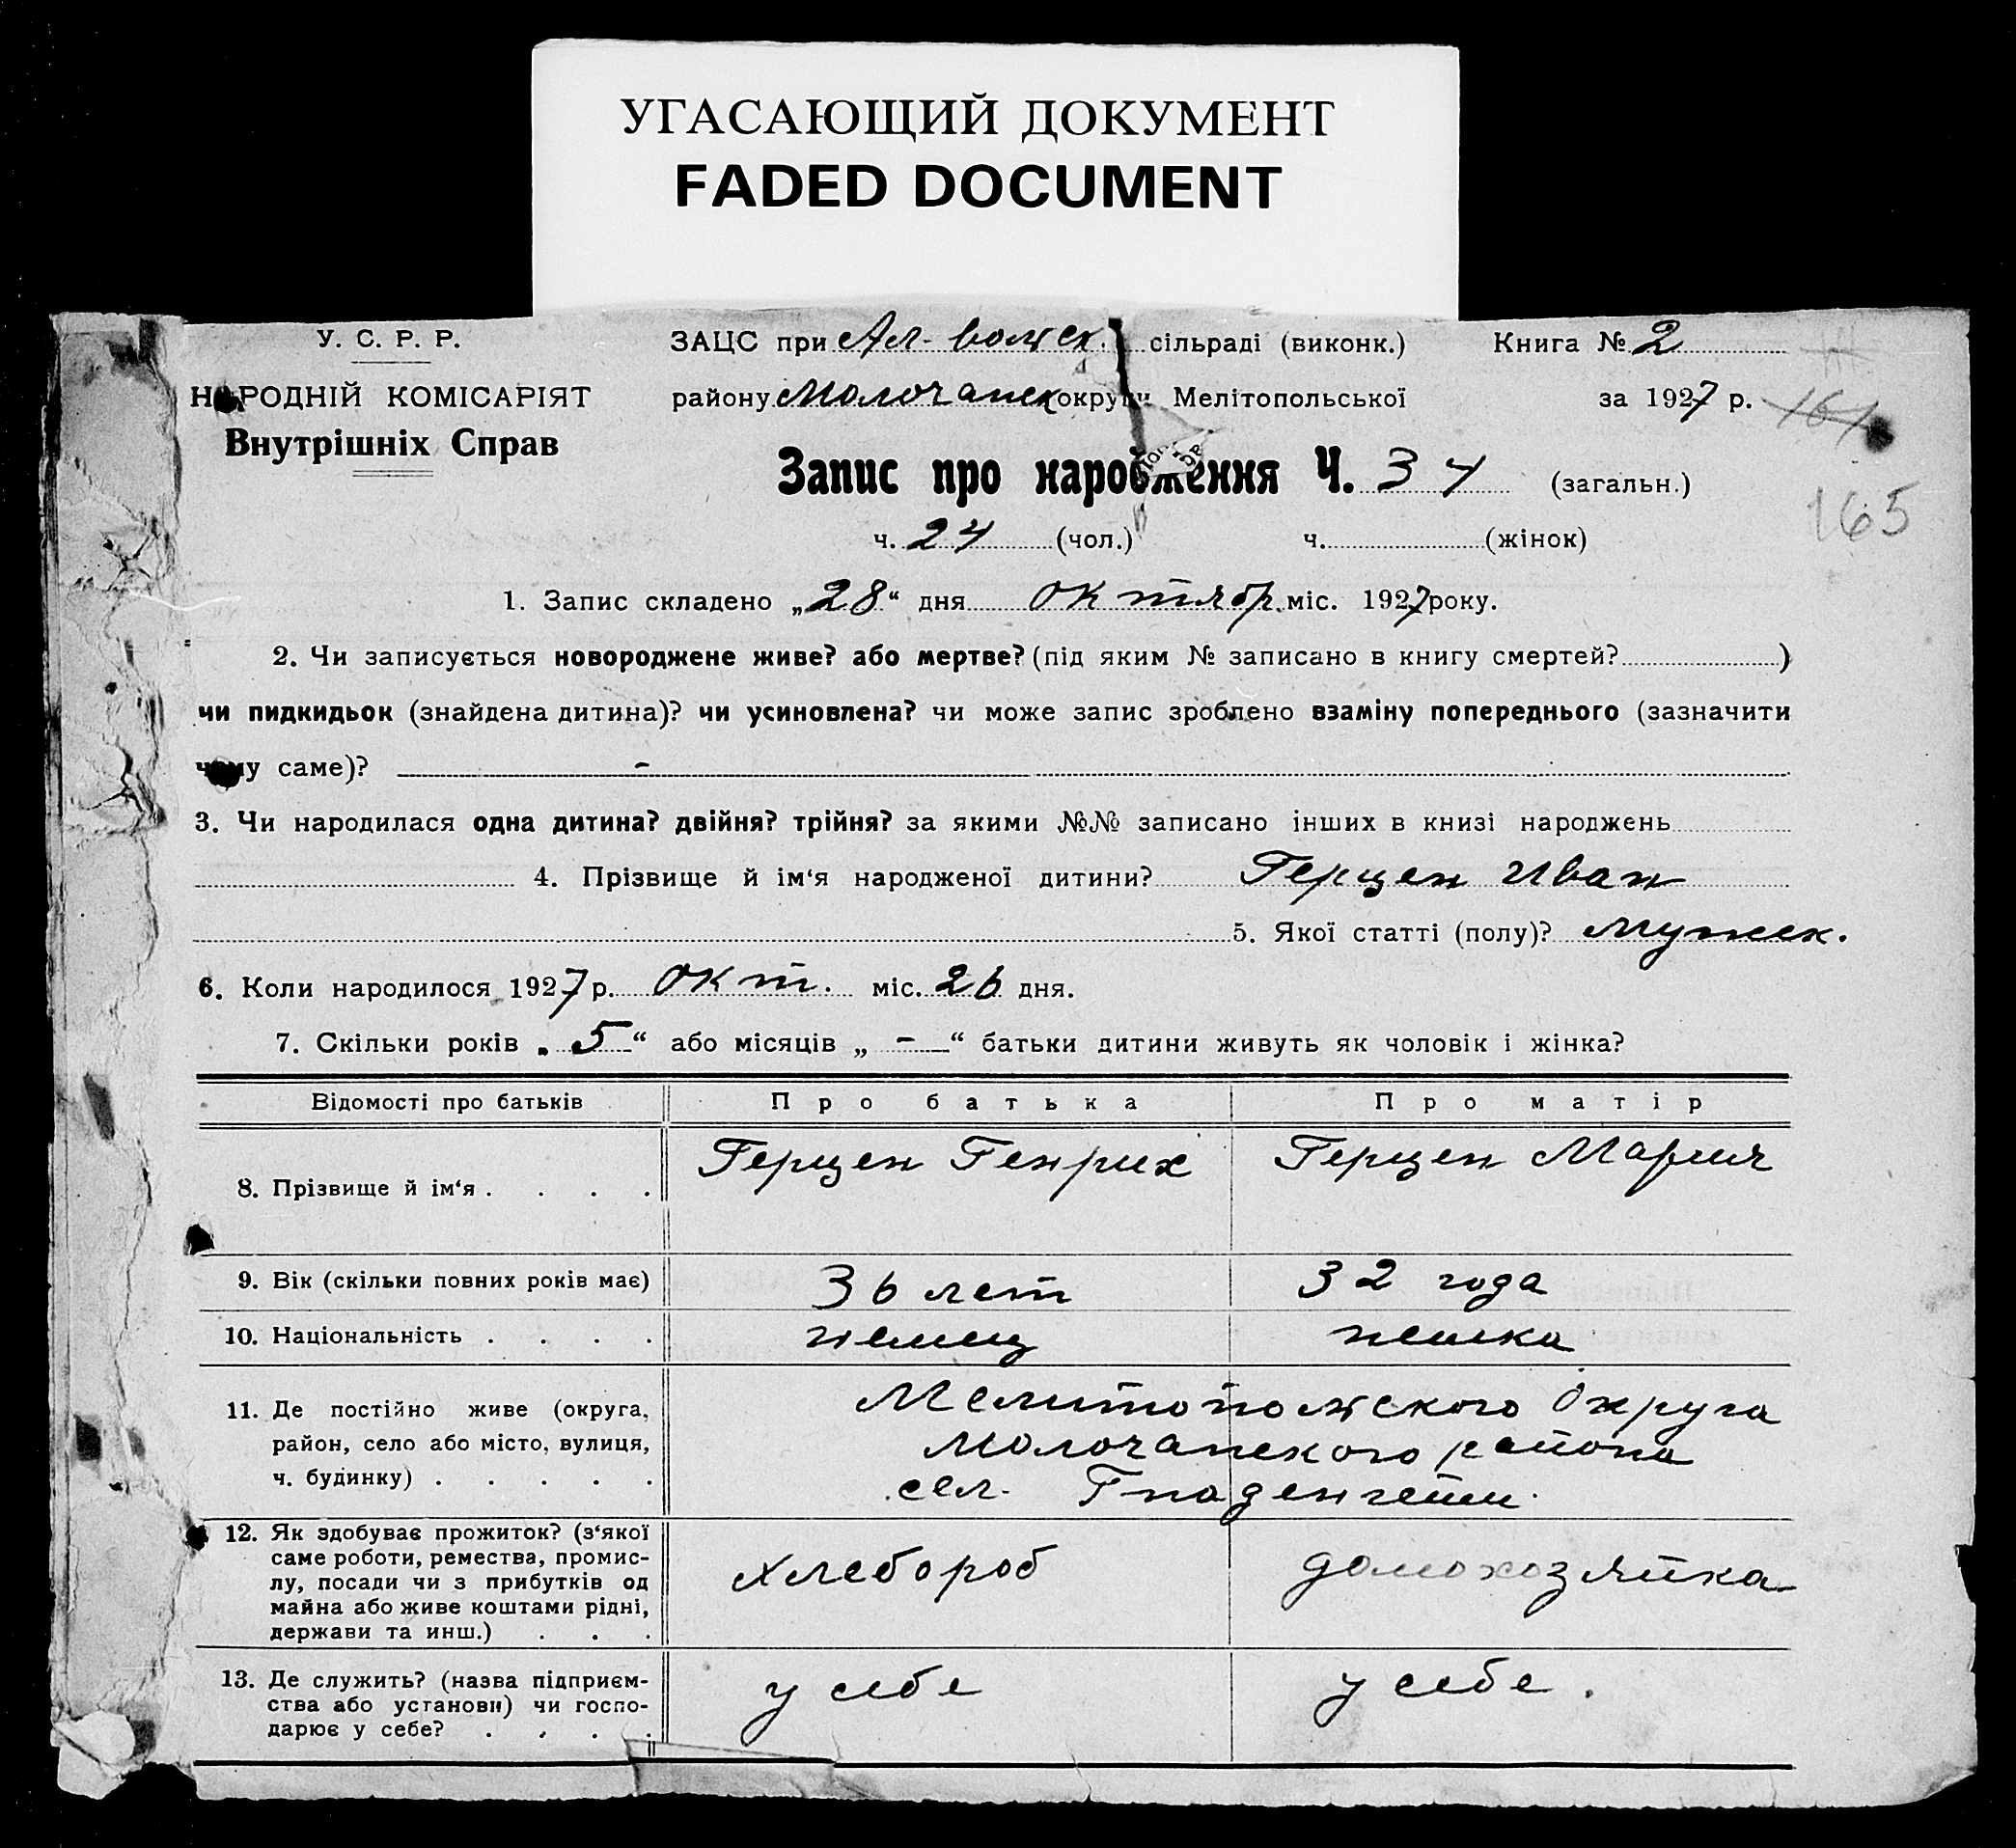 УГАСАЮЩИЙ ДОКУМЕНТ
FADED DOCUMENT
У. С. Р. Р.
НАРОДНІЙ КОМІСАРІЯТ
Внутрішніх Справ
ЗАЦС при Ал- вольск. сільраді (виконк.)
району Молочанск округи Мелітопольської
Книга № 2
за 1927 р.
164
165
Запис про народження Ч. 34 (загальн.)
ч. 24 (чол.) ч. (жінок)
1. Запис складено „28“ дня октябр. міс. 1927 року.
2. Чи записується новороджене живе? або мертве? (під яким № записано в книгу смертей? )
чи пидкидьок (знайдена дитина)? чи усиновлена? чи може запис зроблено взаміну попереднього (зазначити
чому саме)? -
3. Чи народилася одна дитина? двійня? трійня? за якими №№ записано інших в книзі народжень
4. Прізвище й ім‘я народженої дитини? Герцен Иван
5. Якої статті (полу)? мужск.
6. Коли народилося 1927 р. окт. міс. 26 дня.
7. Скільки років „5“ або місяців „-“ батьки дитини живуть як чоловік і жінка?
Відомості про батьків Про батька Про матір
8. Прізвище й ім‘я . . . . Герцен Генрих Герцен Мария
9. Вік (скільки повних років має) 36 лет 32 года
10. Національність . . . . немец немка
11. Де постійно живе (округа,
район, село або місто, вулиця,
ч. будинку) . . . . .
Мелитопольского Округа
Молочанского района
сел. Гнаденгейм.
12. Як здобуває прожиток? (з‘якої
саме роботи, ремества, промис-
лу, посади чи з прибутків од
майна або живе коштами рідні,
держави та инш.) . . .
хлебороб домохозяйка
13. Де служить? (назва підприєм-
ства або установи) чи госпо-
дарює у себе? . . . .
у себе у себе.